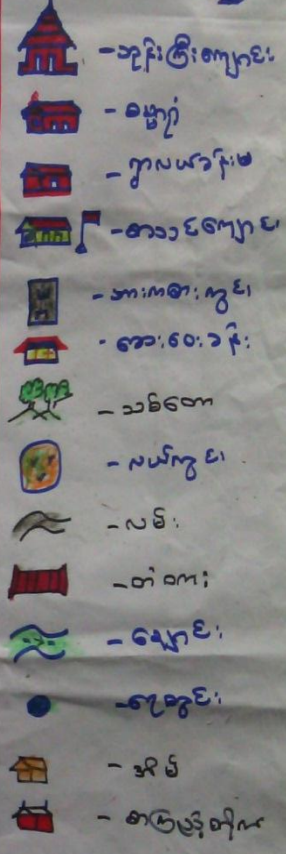 -ဘုန်းကြီးကျောင်း
-ဓမ္မာရုံ
-ရွာလယ်ခန်းမ
-စာသင်ကျောင်း
-အားကစားကွင်း
-ဆေးပေးခန်း
-သစ်တော
-လယ်ကွင်း
-လမ်း
-တံတား
-ချောင်း
-ရေတွင်း
-အိမ်